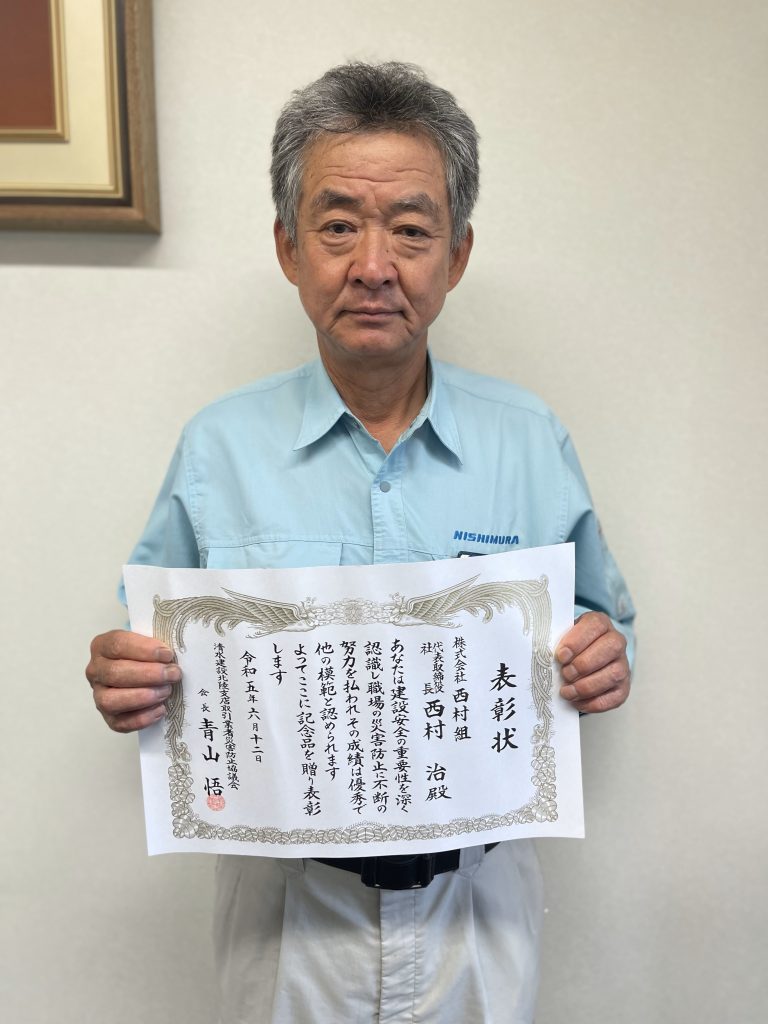 NISHIMURA
表彰状
株式会社 西村組
代表取締役
社長 西村 治 殿
あなたは建設安全の重要性を深く
認識し職場の災害防止に不断の
努力を払われ その成績は優秀で
他の模範と認められます
よってここに記念品を贈り表彰
します
令和五年六月十二日
清水建設北陸支店取引業者災害防止協議会
会長 青山 悟